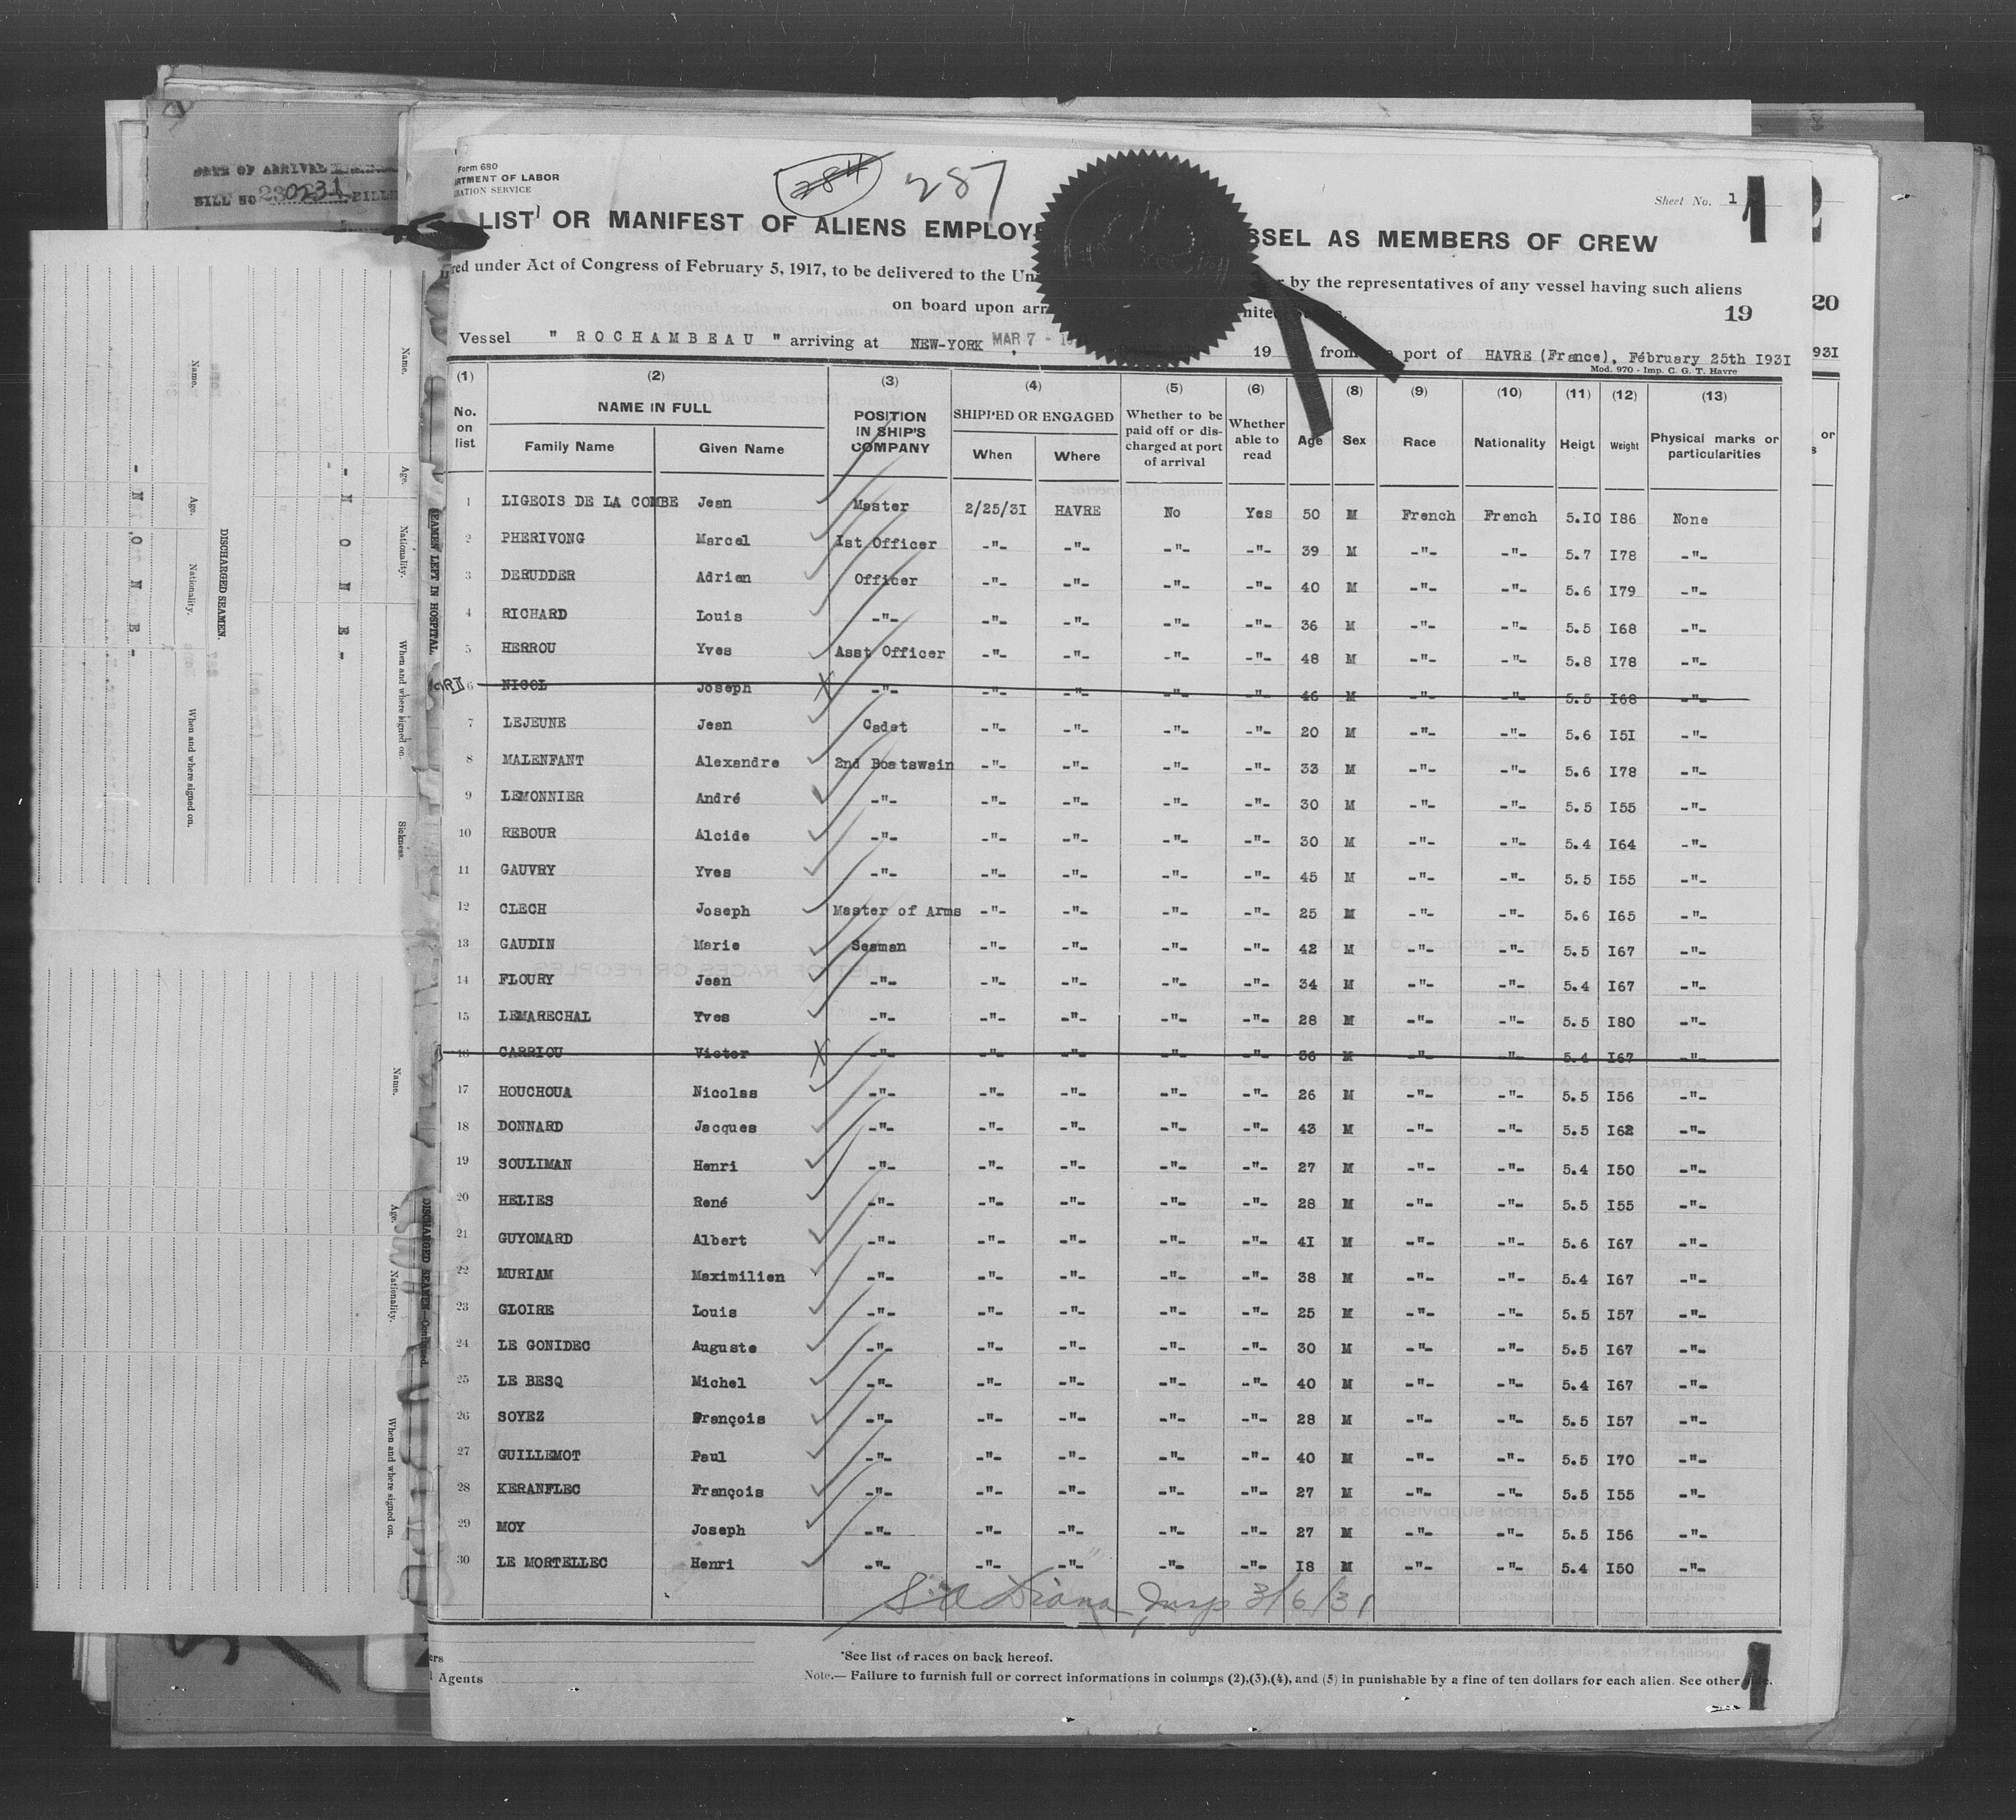 DATE OF ARRIVAL
BILL NO 230231
Form 680
RTMENT OF LABOR
RATION SERVICE
284
287
Sheet No. 1
1
2
LIST OR MANIFEST OF ALIENS EMPLOY SSEL AS MEMBERS OF CREW
red under Act of Congress of February 5, 1917, to be delivered to the Un by the representatives of any vessel having such aliens
on board upon arr nited
19
20
Vessel " ROCHAMBEAU " arriving at NEW-YORK MAR 7 - 19 from port of HAVRE (France), February 25th I931
931
Mod. 970 - Imp. C. G. T. Havre
(1) (2) (3) (4) (5) (6) (8) (9) (10) (11) (12) (13)
No. on list NAME IN FULL Family Name Given Name POSITION IN SHIP'S COMPANY SHIPPED OR ENGAGED When Where Whether to be paid off or discharged at port of arrival Whether able to read Age Sex Race Nationality Heigt Weight Physical marks or particularities
1 LIGEOIS DE LA COMBE Jean Master 2/25/3I HAVRE No Yes 50 M French French 5.I0 I86 None
2 PHERIVONG Marcel Ist Officer -"- -"- -"- -"- 39 M -"- -"- 5.7 I78 -"-
3 DERUDDER Adrien Officer -"- -"- -"- -"- 40 M -"- -"- 5.6 I79 -"-
4 RICHARD Louis -"- -"- -"- -"- -"- 36 M -"- -"- 5.5 I68 -"-
5 HERROU Yves Asst Officer -"- -"- -"- -"- 48 M -"- -"- 5.8 I78 -"-
6 NICOL Joseph -"- -"- -"- -"- -"- 46 M -"- -"- 5.5 I68 -"-
7 LEJEUNE Jean Cadet -"- -"- -"- -"- 20 M -"- -"- 5.6 I5I -"-
8 MALENFANT Alexandre 2nd Boatswain -"- -"- -"- -"- 33 M -"- -"- 5.6 I78 -"-
9 LEMONNIER André -"- -"- -"- -"- -"- 30 M -"- -"- 5.5 I55 -"-
10 REBOUR Alcide -"- -"- -"- -"- -"- 30 M -"- -"- 5.4 I64 -"-
11 GAUVRY Yves -"- -"- -"- -"- -"- 45 M -"- -"- 5.5 I55 -"-
12 CLECH Joseph Master of Arms -"- -"- -"- -"- 25 M -"- -"- 5.6 I65 -"-
13 GAUDIN Marie Seaman -"- -"- -"- -"- 42 M -"- -"- 5.5 I67 -"-
14 FLOURY Jean -"- -"- -"- -"- -"- 34 M -"- -"- 5.4 I67 -"-
15 LEMARECHAL Yves -"- -"- -"- -"- -"- 28 M -"- -"- 5.5 I80 -"-
16 CARRIOU Victor -"- -"- -"- -"- -"- 36 M -"- -"- 5.4 I67 -"-
17 HOUCHOUA Nicolas -"- -"- -"- -"- -"- 26 M -"- -"- 5.5 I56 -"-
18 DONNARD Jacques -"- -"- -"- -"- -"- 43 M -"- -"- 5.5 I62 -"-
19 SOULIMAN Henri -"- -"- -"- -"- -"- 27 M -"- -"- 5.4 I50 -"-
20 HELIES René -"- -"- -"- -"- -"- 28 M -"- -"- 5.5 I55 -"-
21 GUYOMARD Albert -"- -"- -"- -"- -"- 4I M -"- -"- 5.6 I67 -"-
22 MURIAM Maximilien -"- -"- -"- -"- -"- 38 M -"- -"- 5.4 I67 -"-
23 GLOIRE Louis -"- -"- -"- -"- -"- 25 M -"- -"- 5.5 I57 -"-
24 LE GONIDEC Auguste -"- -"- -"- -"- -"- 30 M -"- -"- 5.5 I67 -"-
25 LE BESQ Michel -"- -"- -"- -"- -"- 40 M -"- -"- 5.4 I67 -"-
26 SOYEZ François -"- -"- -"- -"- -"- 28 M -"- -"- 5.5 I57 -"-
27 GUILLEMOT Paul -"- -"- -"- -"- -"- 40 M -"- -"- 5.5 I70 -"-
28 KERANFLEC François -"- -"- -"- -"- -"- 27 M -"- -"- 5.5 I55 -"-
29 MOY Joseph -"- -"- -"- -"- -"- 27 M -"- -"- 5.5 I56 -"-
30 LE MORTELLEC Henri -"- -"- -"- -"- -"- I8 M -"- -"- 5.4 I50 -"-
Diana Insp 3/6/31
*See list of races on back hereof.
Agents
Note.— Failure to furnish full or correct informations in columns (2),(3),(4), and (5) in punishable by a fine of ten dollars for each alien. See other
1
SEAMEN LEFT IN HOSPITAL.
Name. Age. Nationality. When and where signed on. Sickness.
- N O N E -
DISCHARGED SEAMEN.
Name. Age. Nationality. When and where signed on.
- N O N E -
DISCHARGED SEAMEN—Continued.
Name. Age. Nationality. When and where signed on.